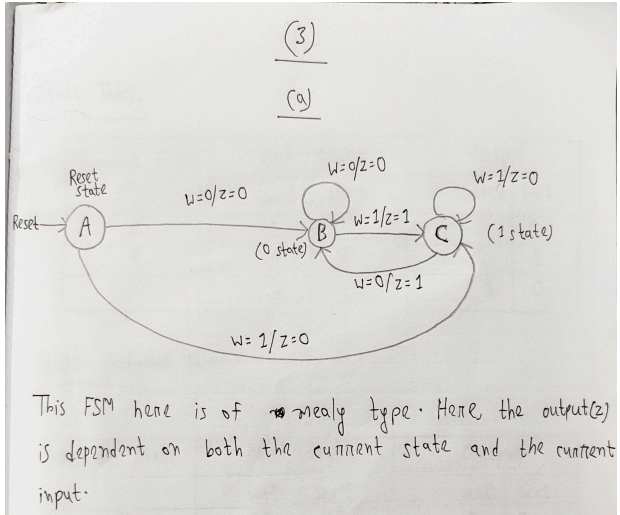 (3)
(a)
Reset
state
W=0/Z=0
W=0/Z=0
W=1/Z=0
Reset
A
B
W=1/Z=1
C
(1 state)
(0 state)
W=0/Z=1
W=1/Z=0
This FSM here is of mealy type. Here, the output(z)
is dependent on both the current state and the current
input.